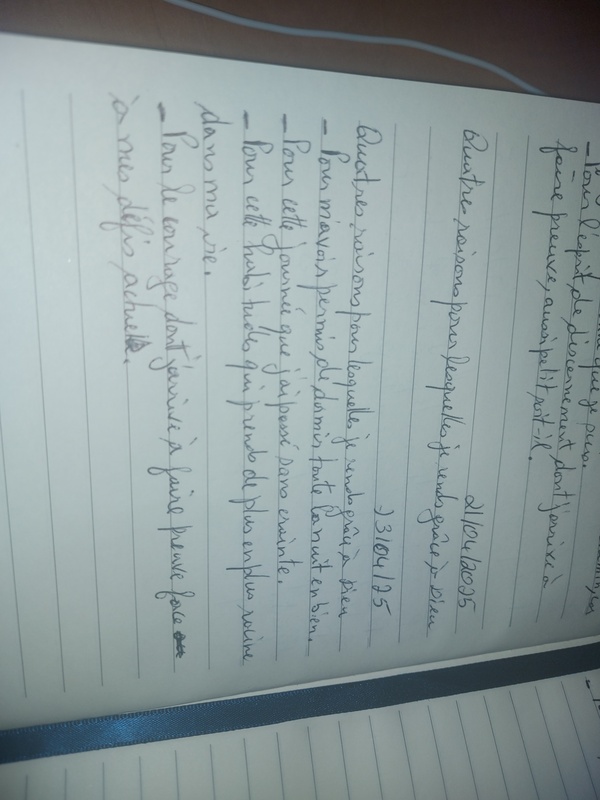 que je suis.
- Pour l'esprit de discernement dont j'arrive à
faire preuve, aussi petit soit-il.
21/04/2025
Quatre raisons pour lesquelles je rends grâce à Dieu
23/04/25
Quatres raisons pour lesquelles je rends grâce à Dieu
- Pour m'avoir permis de dormir toute la nuit en bien.
- Pour cette journée que j'ai passé sans crainte.
- Pour cette habitudes qui prends de plus en plus racine
dans ma vie.
- Pour le courage dont j'arrive à faire preuve face
à mes défis actuels.